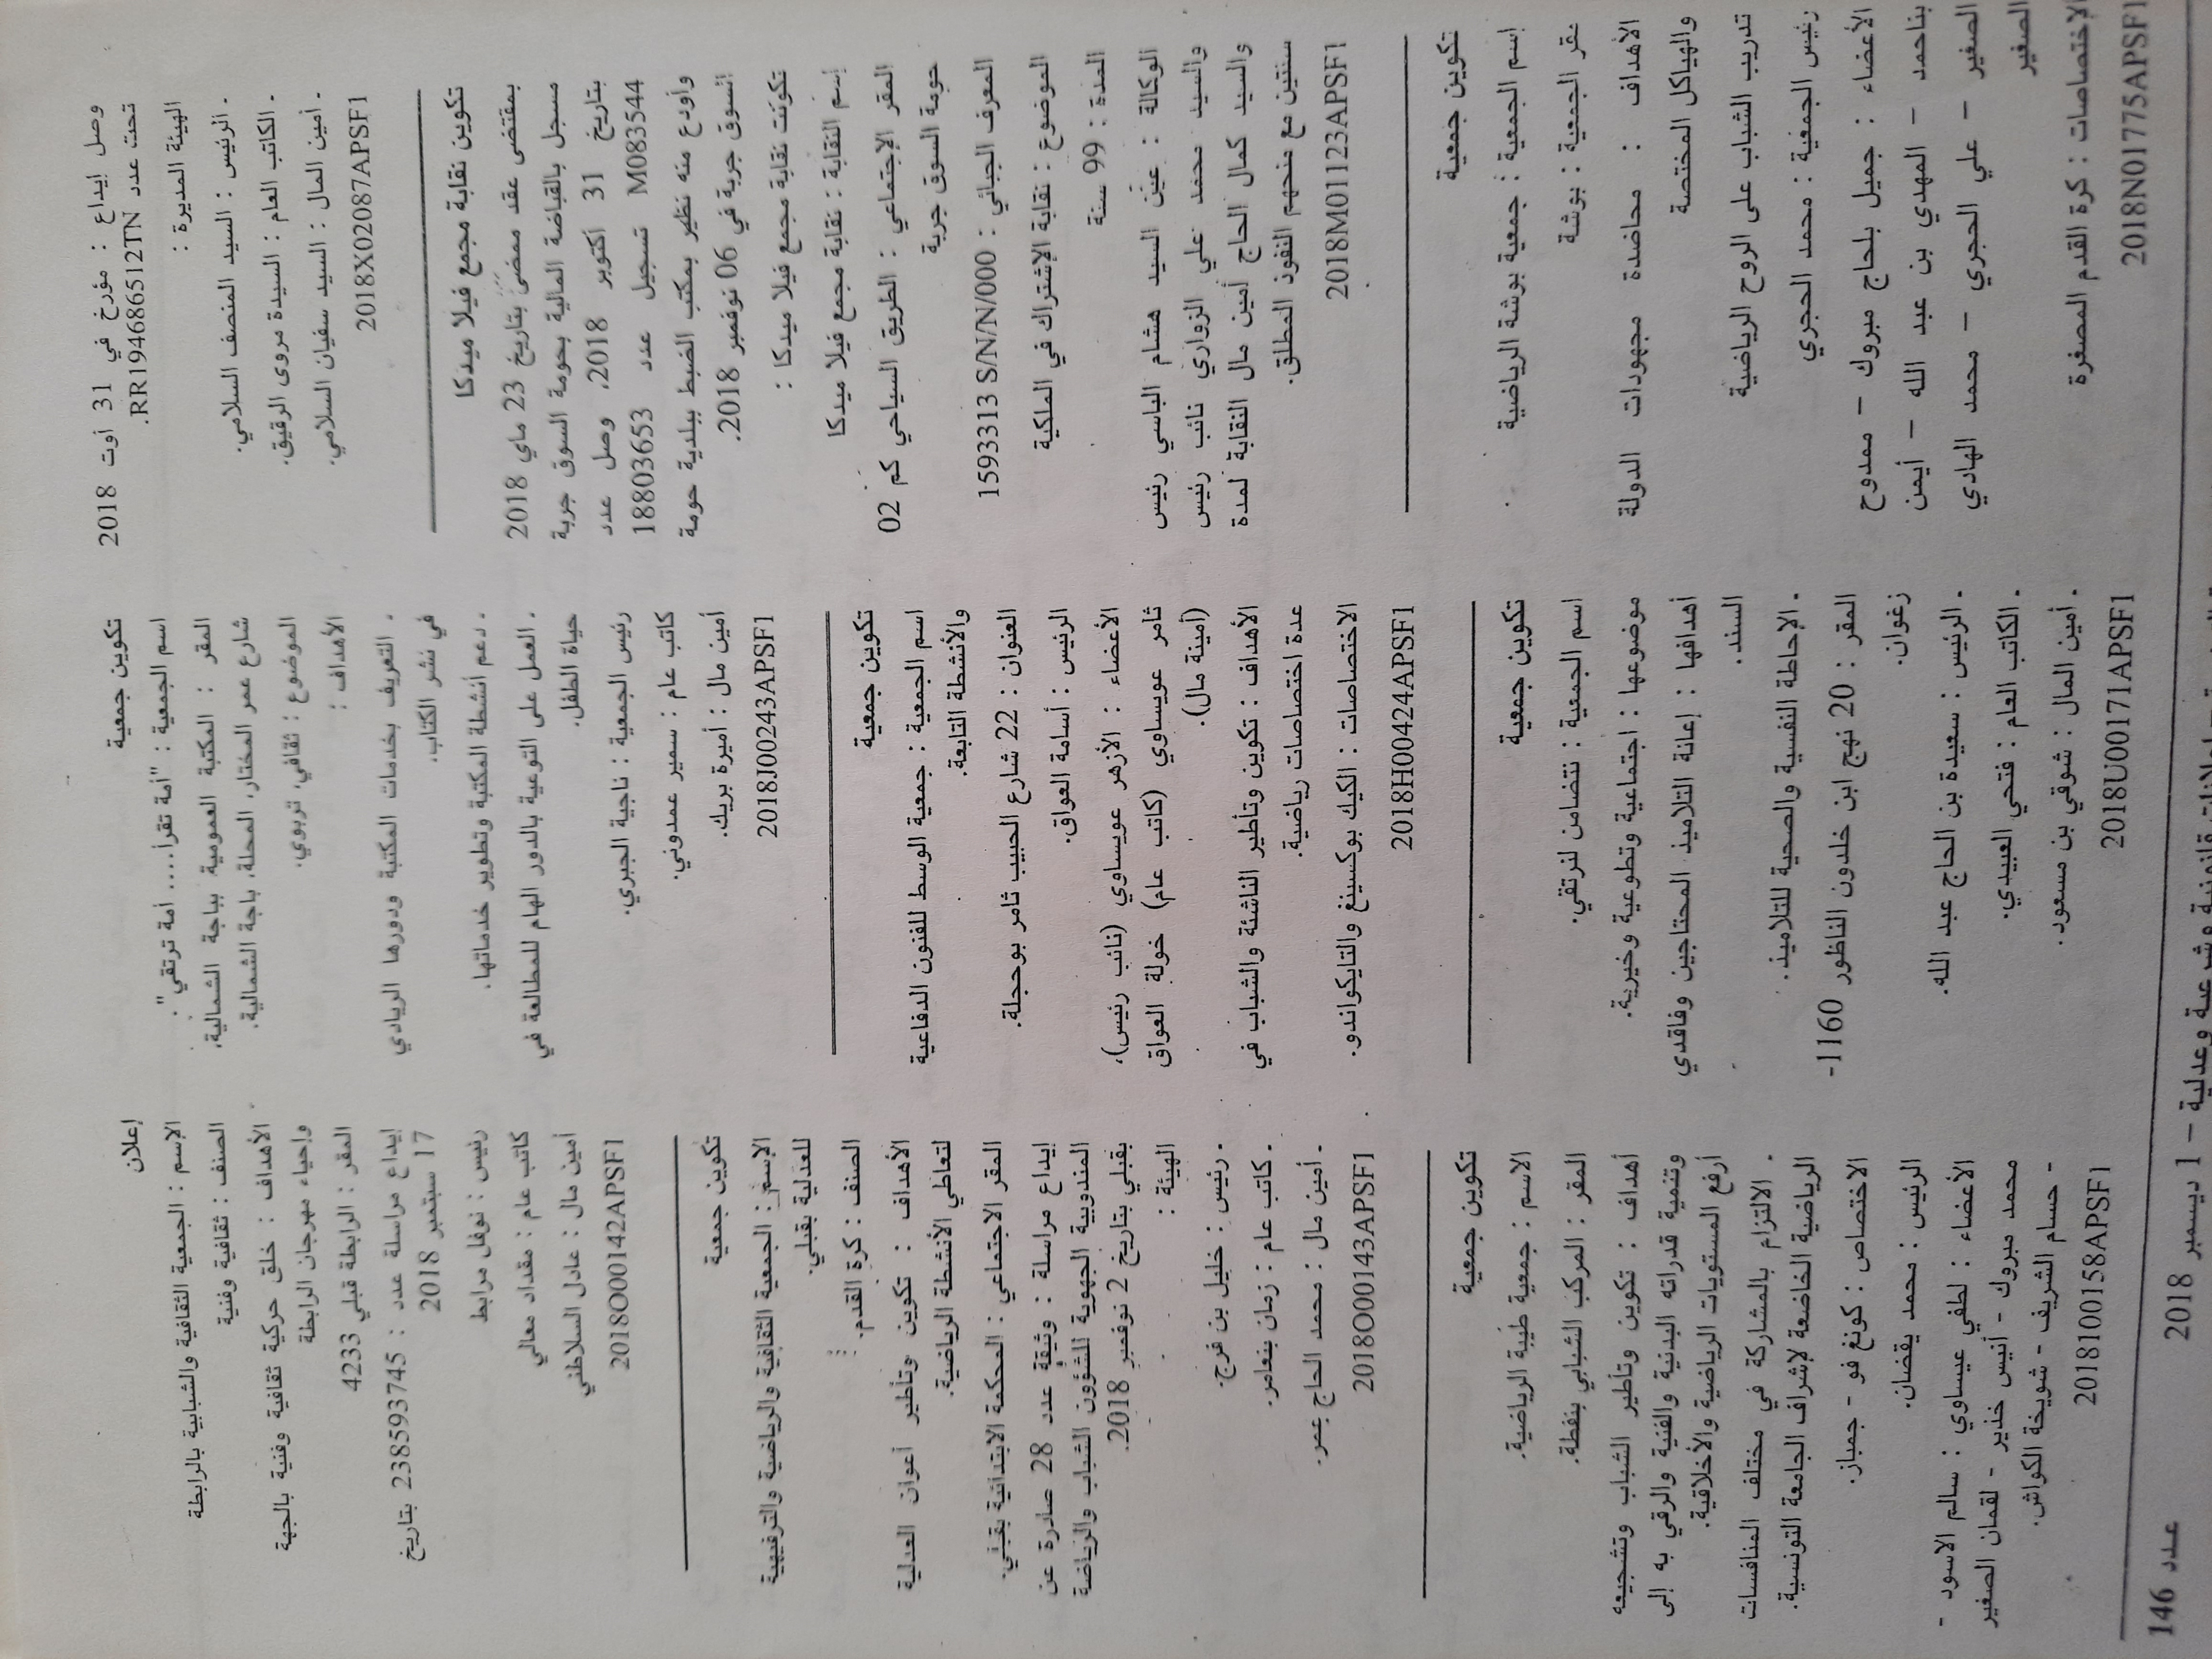 وصل إيداع : مؤرخ في 31 أوت 2018
تحت عدد RR194686512TN.
الهيئة المديرة :
- الرئيس : السيد المنصف السلامي.
- الكاتب العام : السيدة مروى الرقيق.
- أمين المال : السيد سفيان السلامي.
2018X02087APSF1
تكوين نقابة مجمع فيلا ميدكا
بمقتضى عقد ممضى بتاريخ 23 ماي 2018
مسجل بالقباضة المالية بحومة السوق جربة
بتاريخ 31 أكتوبر 2018، وصل عدد
M083544 تسجيل عدد 18803653
وأودع منه نظير بمكتب الضبط ببلدية حومة
السوق جربة في 06 نوفمبر 2018.
تكونت نقابة مجمع فيلا ميدكا :
إسم النقابة : نقابة مجمع فيلا ميدكا
المقر الإجتماعي : الطريق السياحي كم 02
حومة السوق جربة
المعرف الجبائي : 1593313 S/N/N/000
الموضوع : نقابة الإشتراك في الملكية
المدة : 99 سنة
الوكالة : عين السيد هشام الباسي رئيس
والسيد محمد علي الزواري نائب رئيس
والسيد كمال الحاج أمين مال النقابة لمدة
سنتين مع منحهم النفوذ المطلق.
2018M01123APSF1
تكوين جمعية
إسم الجمعية : جمعية بوشة الرياضية
مقر الجمعية : بوشة
الأهداف : محاضدة مجهودات الدولة
والهياكل المختصة
تدريب الشباب على الروح الرياضية
رئيس الجمعية : محمد الحجري
الأعضاء : جميل بلحاج مبروك – ممدوح
بناحمد – المهدي بن عبد الله – أيمن
الصغير – علي الحجري – محمد الهادي
الصغير
الإختصاصات : كرة القدم المصغرة
2018N01775APSF1
تكوين جمعية
اسم الجمعية : "أمة تقرأ.... أمة ترتقي".
المقر : المكتبة العمومية بباجة الشمالية،
شارع عمر المختار، المحلة، باجة الشمالية.
الموضوع : ثقافي، تربوي.
الأهداف :
- التعريف بخدمات المكتبة ودورها الريادي
في نشر الكتاب.
- دعم أنشطة المكتبة وتطوير خدماتها.
- العمل على التوعية بالدور الهام للمطالعة في
حياة الطفل.
رئيس الجمعية : ناجية الجبري.
كاتب عام : سمير عمدوني.
أمين مال : أميرة بريك.
2018J00243APSF1
تكوين جمعية
اسم الجمعية : جمعية الوسط للفنون الدفاعية
والأنشطة التابعة.
العنوان : 22 شارع الحبيب ثامر بوحجلة.
الرئيس : أسامة العواق.
الأعضاء : الأزهر عويساوي (نائب رئيس)،
ثامر عويساوي (كاتب عام) خولة العواق
(أمينة مال).
الأهداف : تكوين وتأطير الناشئة والشباب في
عدة اختصاصات رياضية.
الاختصاصات : الكيك بوكسينغ والتايكواندو.
2018H00424APSF1
تكوين جمعية
اسم الجمعية : نتضامن لنرتقي.
موضوعها : اجتماعية وتطوعية وخيرية.
أهدافها : إعانة التلاميذ المحتاجين وفاقدي
السند.
- الإحاطة النفسية والصحية للتلاميذ.
المقر : 20 نهج ابن خلدون الناظور 1160-
زغوان.
- الرئيس : سعيدة بن الحاج عبد الله.
- الكاتب العام : فتحي العبيدي.
- أمين المال : شوقي بن مسعود.
2018U00171APSF1
إعلان
الإسم : الجمعية الثقافية والشبابية بالرابطة
الصنف : ثقافية وفنية
الأهداف : خلق حركية ثقافية وفنية بالجهة
وإحياء مهرجان الرابطة
المقر : الرابطة قبلي 4233
إيداع مراسلة عدد : 238593745 بتاريخ
17 سبتمبر 2018
رئيس : نوفل مرابط
كاتب عام : مقداد معالي
أمين مال : عادل السلاطني
2018O00142APSF1
تكوين جمعية
الإسم : الجمعية الثقافية والرياضية والترفيهية
للعدلية بقبلي.
الصنف : كرة القدم.
الأهداف : تكوين وتأطير أعوان العدلية
لتعاطي الأنشطة الرياضية.
المقر الاجتماعي : المحكمة الابتدائية بقبلي.
إيداع مراسلة : وثيقة عدد 28 صادرة عن
المندوبية الجهوية للشؤون الشباب والرياضة
بقبلي بتاريخ 2 نوفمبر 2018.
الهيئة :
- رئيس : خليل بن فرج.
- كاتب عام : زمان بنعامر.
- أمين مال : محمد الحاج عمر.
2018O00143APSF1
تكوين جمعية
الاسم : جمعية طيبة الرياضية.
المقر : المركب الشبابي بنفطة.
أهداف : تكوين وتأطير الشباب وتشجيعه
وتنمية قدراته البدنية والفنية والرقي به إلى
أرفع المستويات الرياضية والأخلاقية.
- الالتزام بالمشاركة في مختلف المنافسات
الرياضية الخاضعة لإشراف الجامعة التونسية.
الاختصاص : كونغ فو - جمباز.
الرئيس : محمد يقضان.
الأعضاء : لطفي عيساوي : سالم الاسود -
محمد مبروك - أنيس خذير - لقمان الصغير
- حسام الشريف - شويخة الكواش.
2018100158APSF1
قانونية وشرعية وعدلية – 1 ديسمبر 2018
عدد 146